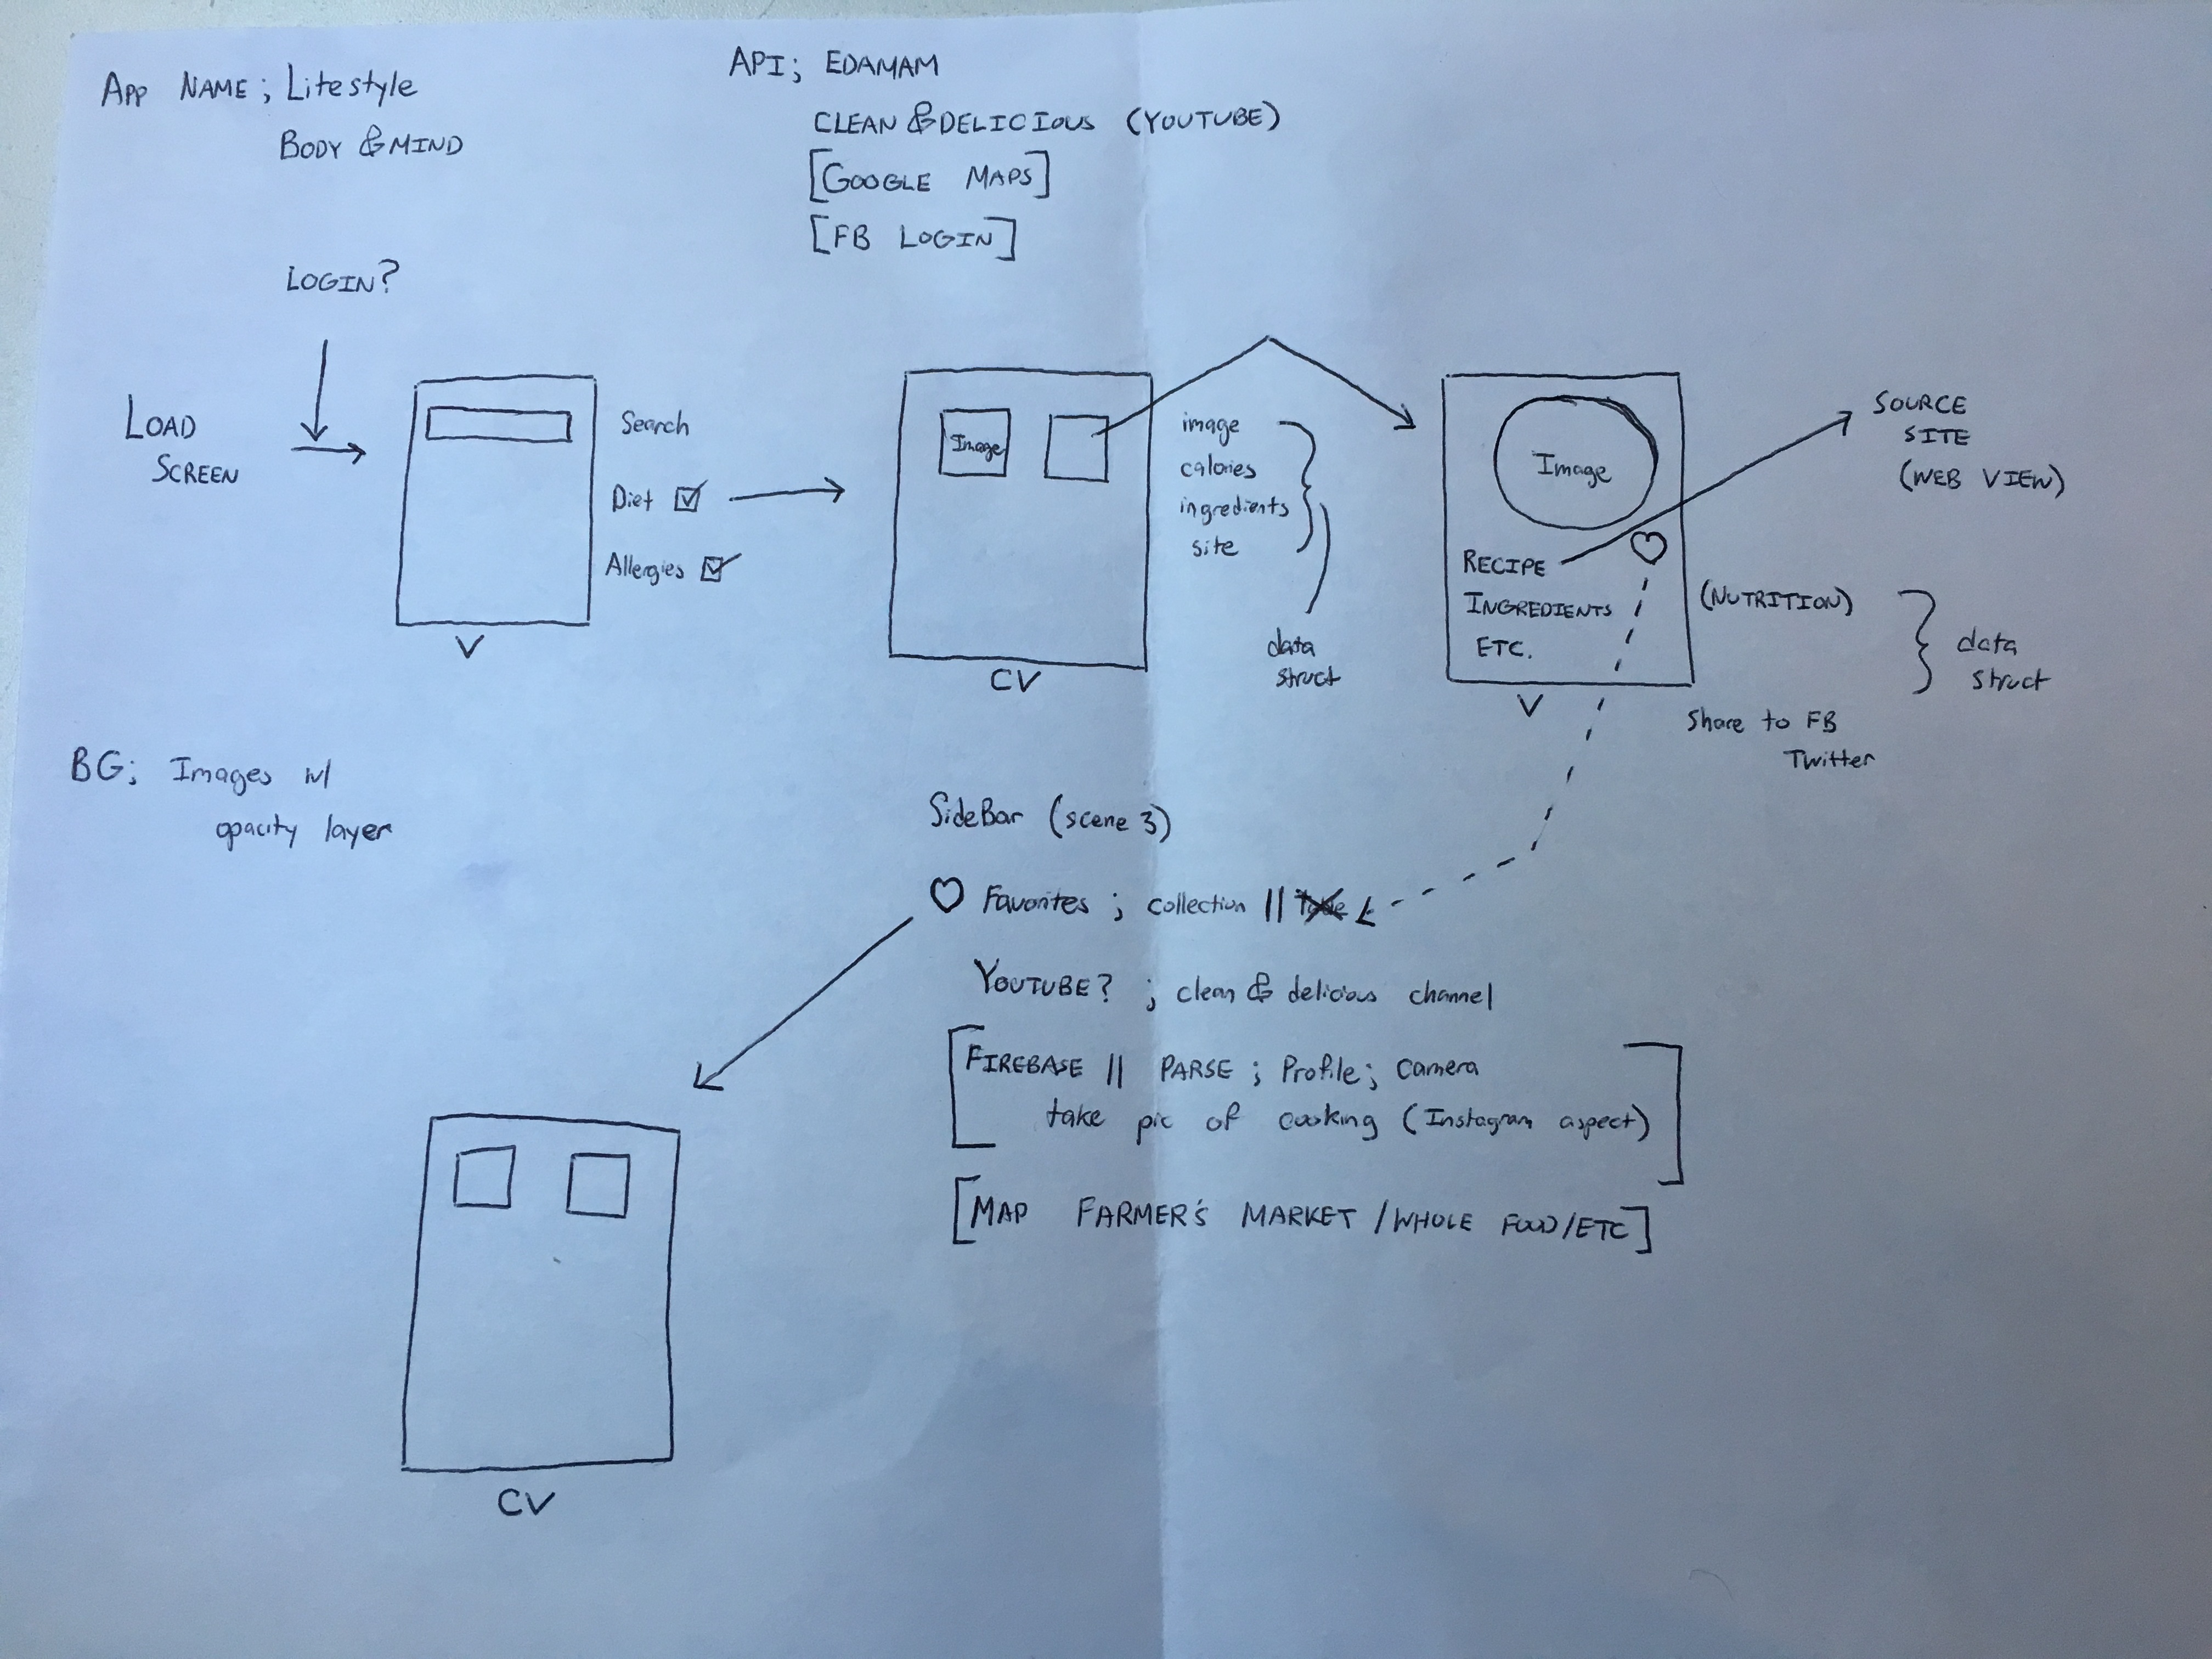 APP NAME; Litestyle
BODY & MIND
API; EDAMAM
CLEAN & DELICIOUS (YOUTUBE)
[GOOGLE MAPS]
[FB LOGIN]
LOGIN?
LOAD
SCREEN
Search
Diet
Allergies
V
Image
CV
image
calories
ingredients
site
data
struct
Image
RECIPE
INGREDIENTS
ETC.
V
SOURCE
SITE
(WEB VIEW)
(NUTRITION)
data
struct
Share to FB
Twitter
BG; Images w/
opacity layer
SideBar (scene 3)
Favorites ; collection ||
YOUTUBE? ; clean & delicious channel
[FIREBASE || PARSE ; Profile; camera
take pic of cooking (Instagram aspect)]
[MAP FARMER'S MARKET / WHOLE FOOD/ETC]
CV